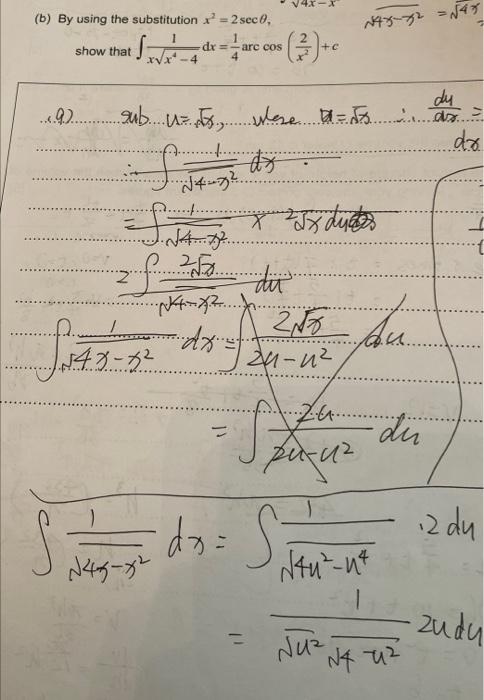 √4x-x
(b) By using the substitution x² = 2 sec θ,
√4x-x² = √4x
show that ∫ 1/(x√(x⁴-4)) dx = 1/4 arc cos (2/x²) + c
(a) sub u=√x, where u=√x ∴ du/dx =
dx
∴ ∫ 1/√(4-x²) dx
= ∫ 1/√(4-x²) × 2√x du
2 ∫ 2√x/√(4-x²) du
∫ 1/√(4x-x²) dx = ∫ 2√x/(2u-u²) du
= ∫ 2u/(2u-u²) du
∫ 1/√(4x-x²) dx = ∫ 1/√(4u²-u⁴) · 2 du
= 1/(√u² √(4-u²)) 2u du